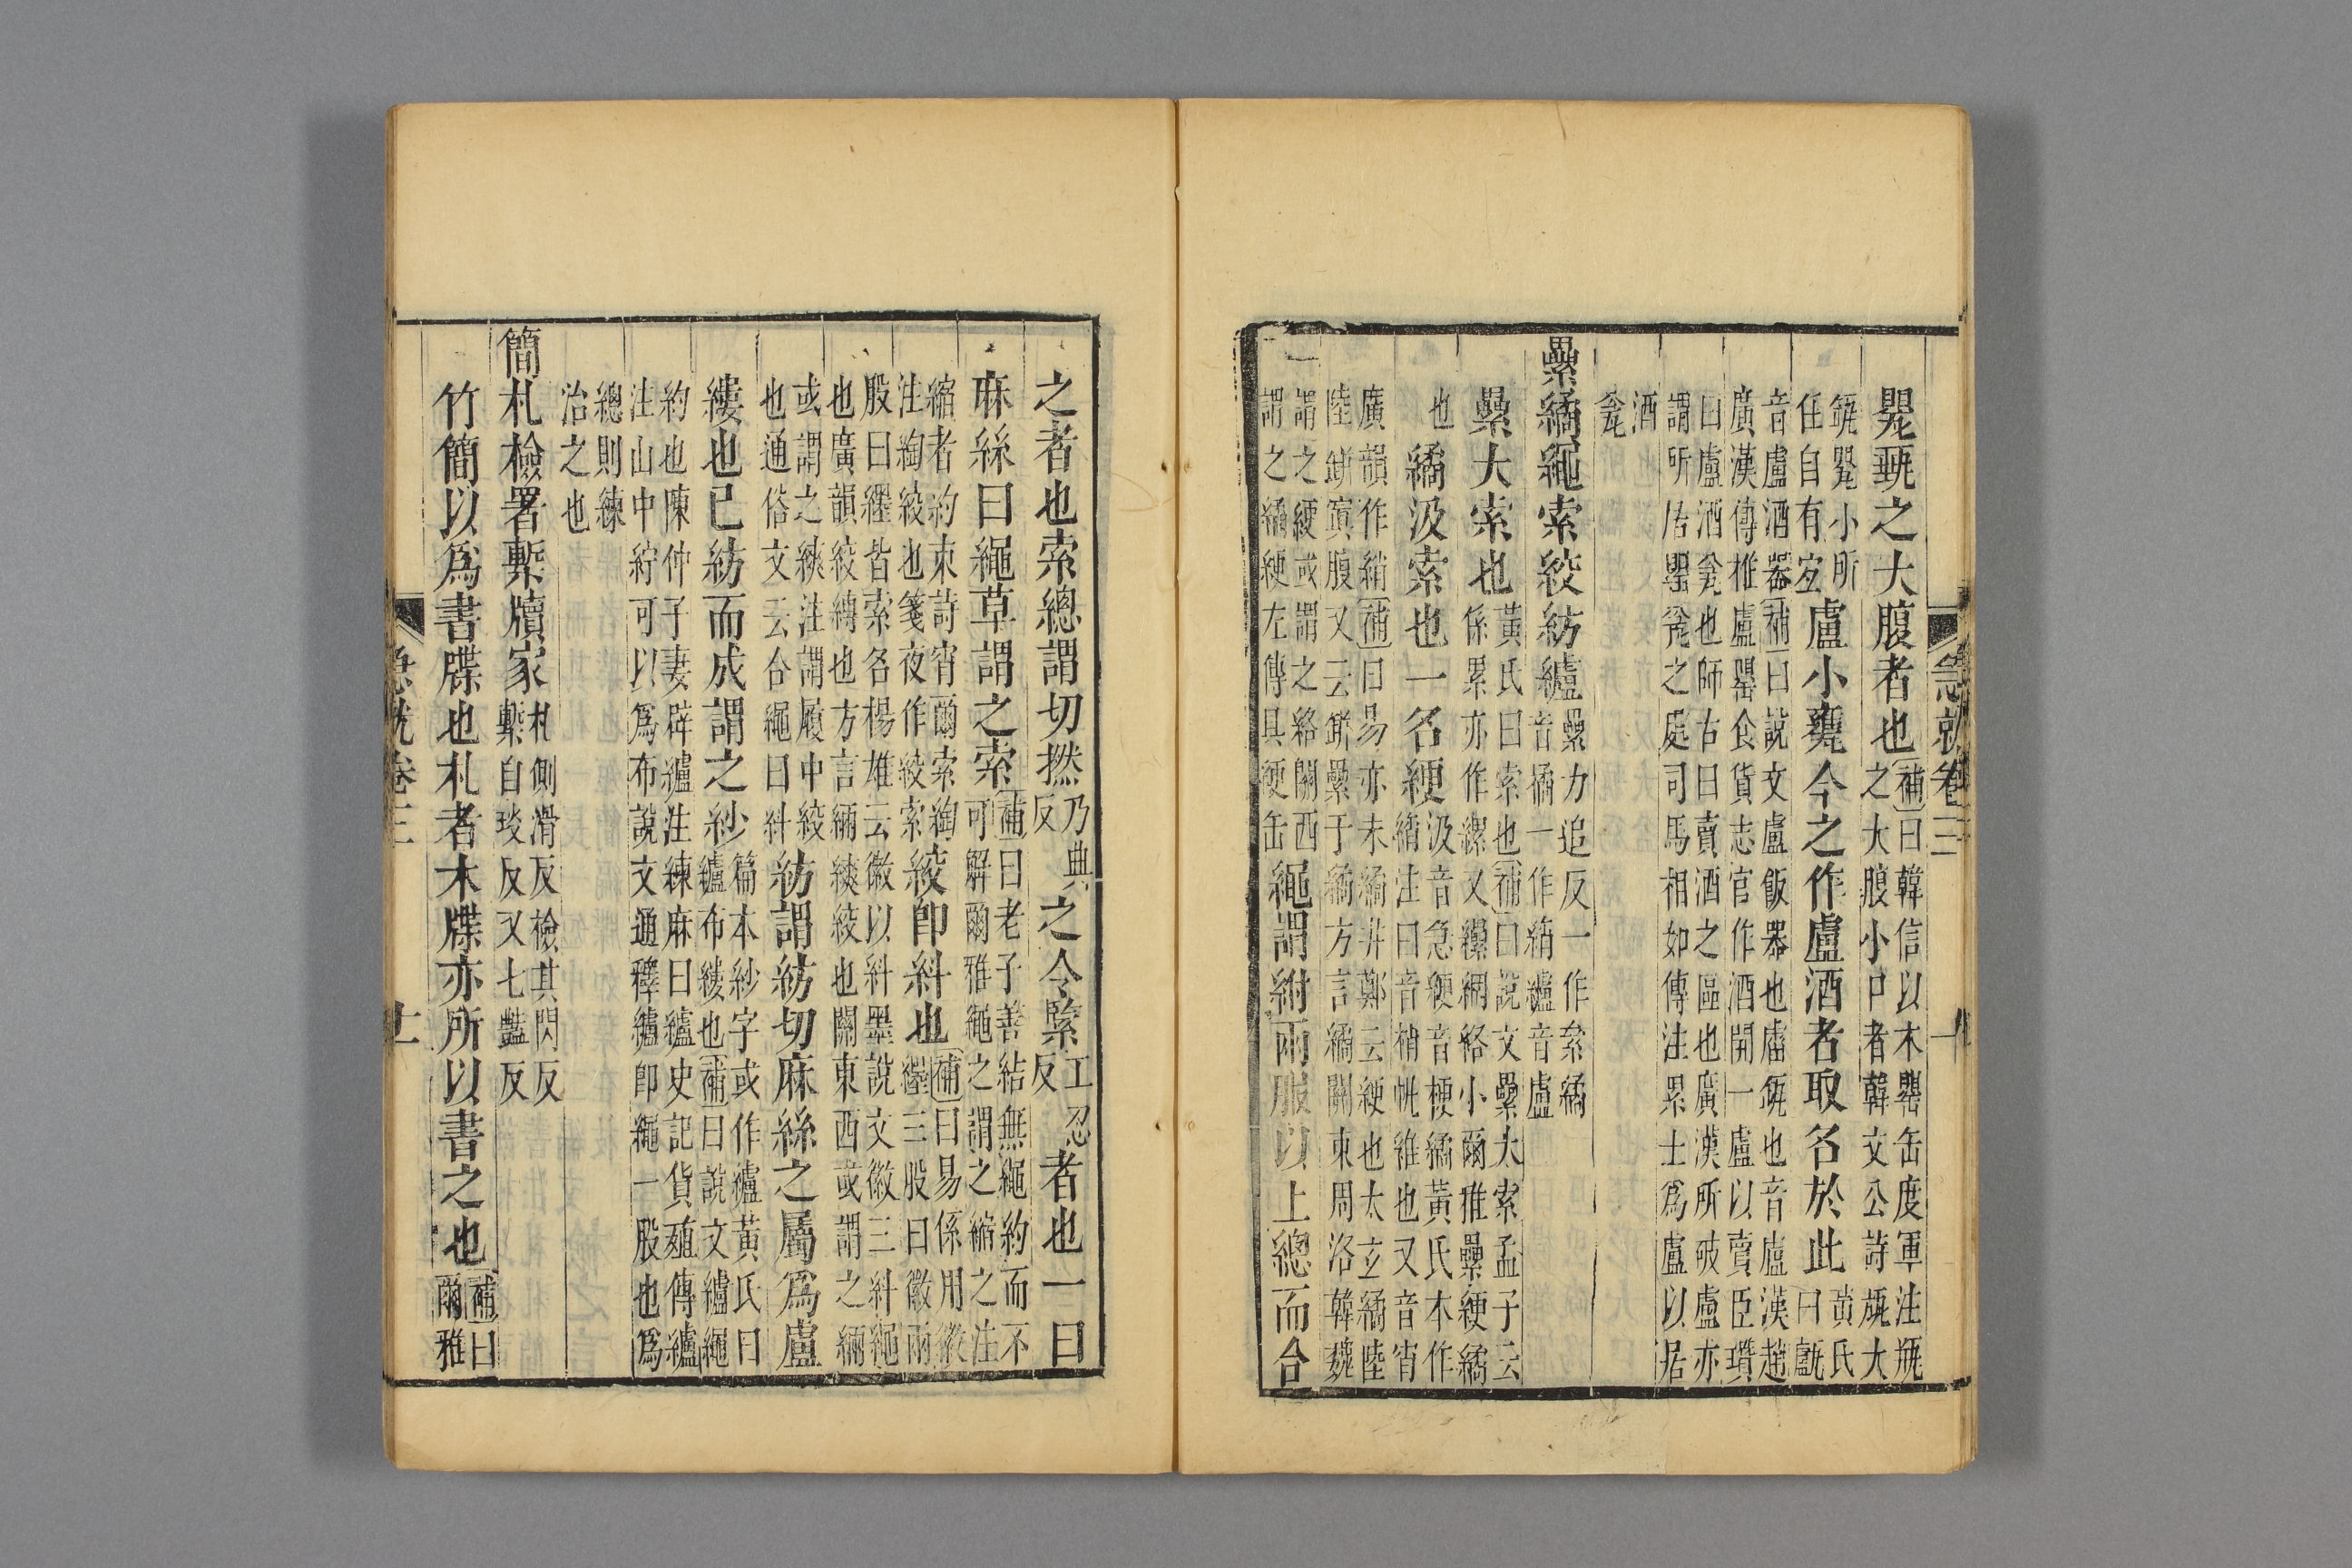 急就卷三 十
甖瓨之大腹者也
補曰韓信以木罌缶度軍注瓶
之大腹小口者韓文公詩瓶大
瓶罌小所
任自有
盧小甕今之作盧酒者取名於此
黃氏
曰
音盧酒器補曰說文盧飯器也㽍瓶也音廬漢趙
廣漢傳椎盧罌食貨志官作酒開一盧以賣臣瓚
曰盧酒瓮也師古曰賣酒之區也廣漢所破盧亦
謂所居罌瓮之處司馬相如傳注累土爲盧以居
酒
瓮
纍繘繩索絞紡纑
纍力追反一作絫繘
音橘一作綃纑音盧
纍大索也
黃氏曰索也補曰說文纍大索孟子云
係累亦作縲又纝綱絡小爾雅纍綆繘
也
繘汲索也一名綆
汲音急綆音梗繘黃氏本作
綃注曰音梢帆維也又音宵
廣韻作綃補曰易亦未繘井鄭云綆也太玄繘陸
陸鉼窴腹又云鉼纍于繘方言繘關東周洛韓魏
謂之綆或謂之絡關西
謂之繘綆左傳具綆缶
繩謂紨兩股以上總而合
之者也索總謂切撚
乃典
反
之令緊
工忍
反
者也一曰
麻絲曰繩草謂之索
補曰老子善結無繩約而不
可解爾雅繩之謂之縮之注
縮者約束詩宵爾索綯
注綯絞也箋夜作絞索
絞卽糾也
補曰易係用徽
纆三股曰徽兩
股曰纆皆索名楊雄云徽以糾墨說文徽三糾繩
也廣韻絞縛也方言緉緓絞也關東西或謂之緉
或謂之緓注謂履中絞
也通俗文云合繩曰糾
紡謂紡切麻絲之屬爲盧
縷也已紡而成謂之紗
篇本紗字或作纑黃氏曰
纑布縷也補曰說文纑繩
約也陳仲子妻辟纑注練麻曰纑史記貨殖傳纑
注山中紵可以爲布說文通釋纑卽繩一股也爲
總則練
治之也
簡札檢署槧牘家
札側滑反檢其閃反
槧自琰反又七豔反
竹簡以爲書牒也札者木牒亦所以書之也
補曰
爾雅
急就卷三 十一